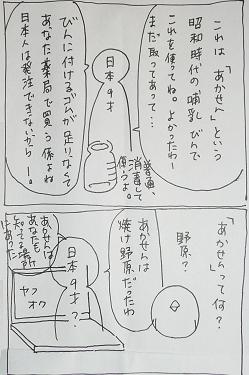 これは「あかせん」という
昭和時代の哺乳びんで
これを使ってね。よかったわー
まだ取ってあって…
日本9才
普通、
消毒して
使うよ。
びんに付けるゴムが足りなくて
あなた薬局で買う係よね
日本人は発注できないからー。
「あかせん」って何？
野原？
あかせんは
焼け野原だったわ
日本9才？
あかせんは
あなたも
知ってる場所
にあった
ヤフ
オク